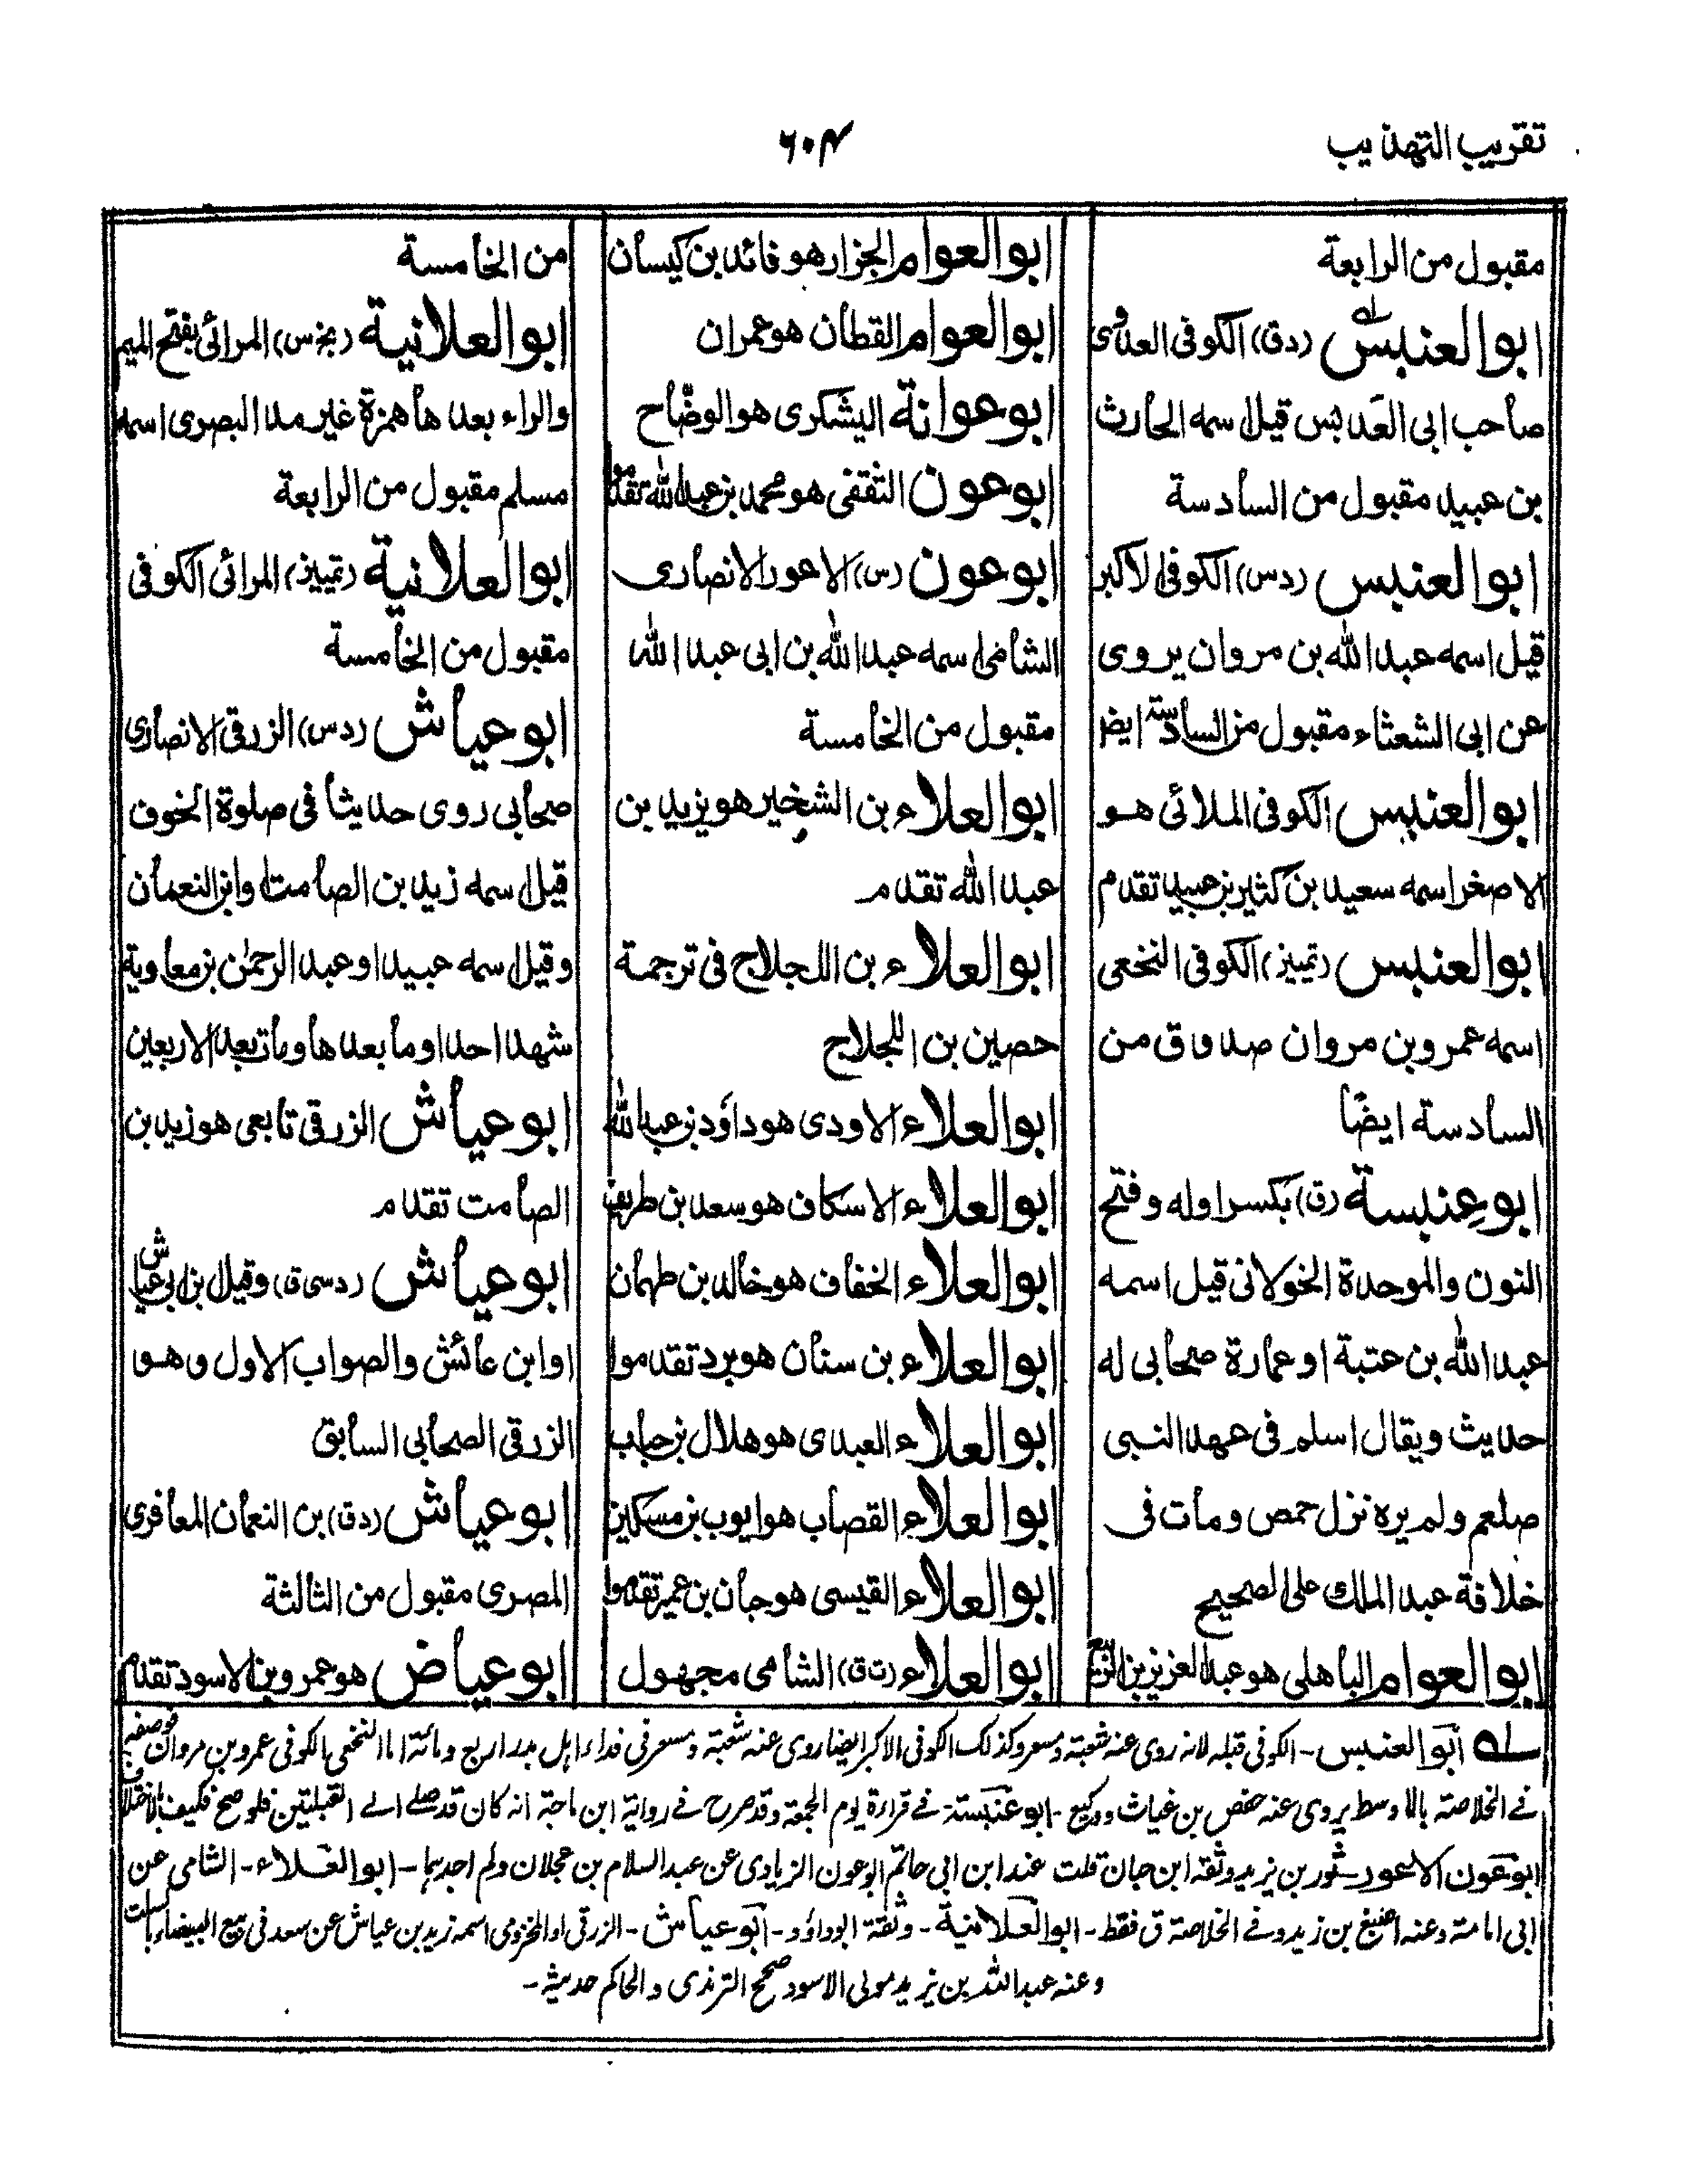 تقريب التهذيب
٦٠٤
مقبول من الرابعة
ابو العنبس (دق) الكوفى العدوى
صاحب ابى العدبس قيل اسمه الحارث
بن عبيد مقبول من السادسة
ابو العنبس (دس) الكوفى الاكبر
قيل اسمه عبد الله بن مروان يروى
عن ابى الشعثاء مقبول من السادسة ايضا
ابو العنبس الكوفى الملائى هو
الاصغر اسمه سعيد بن كثير بن عبيد تقدم
ابو العنبس (تمييز) الكوفى النخعى
اسمه عمرو بن مروان صدوق من
السادسة ايضًا
ابو عِنبسة (ق) بكسر اوله وفتح
النون والموحدة الخولانى قيل اسمه
عبد الله بن عتبة او عمارة صحابى له
حديث ويقال اسلم فى عهد النبى
صلعم ولم يره نزل حمص ومات فى
خلافة عبد الملك على الصحيح
ابو العوام الباهلى هو عبد العزيز بن الربيع
ابو العوام الجزار هو فائد بن كيسان
ابو العوام القطان هو عمران
ابو عوانة اليشكرى هو الوضّاح
ابو عون الثقفى هو محمد بن عبد الله تقدموا
ابو عون (س) الاعور الانصارى
الشامى اسمه عبد الله بن ابى عبد الله
مقبول من الخامسة
ابو العلاء بن الشخير هو يزيد بن
عبد الله تقدم
ابو العلاء بن اللجلاج فى ترجمة
حصين بن اللجلاج
ابو العلاء الاودى هو داؤد بن عبد الله
ابو العلاء الاسكاف هو سعد بن طريف
ابو العلاء الخفاف هو خالد بن طهمان
ابو العلاء بن سنان هو برد تقدموا
ابو العلاء العبدى هو هلال بن خباب
ابو العلاء القصاب هو ايوب بن مسكين
ابو العلاء القيسى هو حيان بن عمير تقدموا
ابو العلاء (ت ق) الشامى مجهول
من الخامسة
ابو العلانية (بخ س) المرائى بفتح الميم
والراء بعدها همزة غير مد البصرى اسمه
مسلم مقبول من الرابعة
ابو العلانية (تمييز) المرائى الكوفى
مقبول من الخامسة
ابو عياش (دس) الزرقى الانصارى
صحابى روى حديثا فى صلوة الخوف
قيل اسمه زيد بن الصامت او ابن النعمان
وقيل اسمه عبيد او عبد الرحمٰن بن معاوية
شهد احدا وما بعدها ومات بعد الاربعين
ابو عياش الزرقى تابعى هو زيد بن
الصامت تقدم
ابو عياش (دسى ق) وقيل بن ابى عياش
او ابن عائش والصواب الاول وهو
الزرقى الصحابى السابق
ابو عياش (دق) بن النعمان المعافرى
المصرى مقبول من الثالثة
ابو عياض هو عمرو بن الاسود تقدم
له ابو العنبس - الكوفى قبله لانه روى عنه شعبة ومسعر وكذلك الكوفى الاكبر ايضا روى عنه شعبة ومسعر فى فداء اهل بدر اربع ومائة اما النخعى الكوفى عمرو بن مروان فوصفه
فے الخلاصة بالاوسط يروى عنه حفص بن غياث ووكيع - ابو عنبسة - فے قراءة يوم الجمعة وقد صرح فے رواية ابن ماجة انه كان قد صلے الے القبلتين فلو صح فكيف بالاختلاف
ابو عون الاعور - ثور بن يزيد وثقه ابن حبان قلت عند ابن ابى حاتم ابو عون الزيادى عن عبد السلام بن عجلان ولم اجدہما - ابو العلاء - الشامى عن
ابى امامة وعنه اصبغ بن زيد وفے الخلاصة ق فقط - ابو العلانية - وثقة ابو داؤد - ابو عياش - الزرقى او المخزومى اسمه زيد بن عياش عن سعد فى بيع البيضاء بالسلت
وعنه عبد الله بن يزيد مولى الاسود صحح الترمذى والحاكم حديثه -